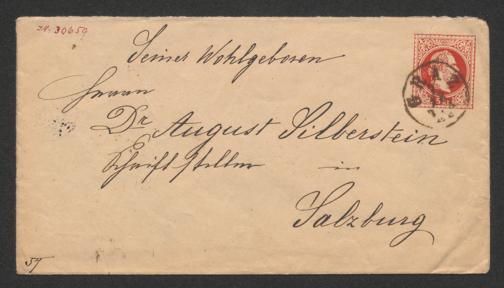 I.N. 30659
Seiner Wohlgeboren
Herrn
Dr August Silberstein
Schriftsteller in
Salzburg
GRAZ
57